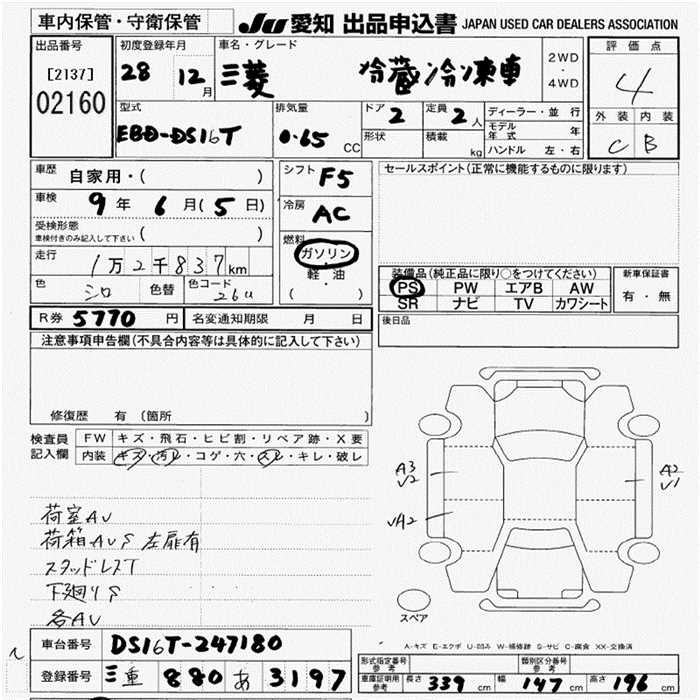 車内保管・守衛保管
JU 愛知 出品申込書 JAPAN USED CAR DEALERS ASSOCIATION
出品番号
[2137]
02160
初度登録年月
28 12月
車名・グレード
三菱 冷蔵冷凍車
2WD
・
4WD
評価点
4
外装 内装
C B
型式
EBD-DS16T
排気量
0.65 CC
ドア 2
形状
定員 2人
積載 kg
ディーラー・並行
モデル年式 年
ハンドル 左・右
車歴 自家用・( )
車検 9年 6月(5日)
受検形態
車検付きのみ記入して下さい ( )
走行 1万2千837km
色 シロ 色替 色コード 26U
シフト F5
冷房 AC
燃料
ガソリン
・
軽・油
( )
セールスポイント(正常に機能するものに限ります)
装備品(純正品に限り○をつけてください)
PS PW エアB AW
SR ナビ TV カワシート
新車保証書
有・無
R券 5770円 名変通知期限 月 日
後日品
注意事項申告欄(不具合内容等は具体的に記入して下さい)
修復歴 有 (箇所 )
検査員記入欄
FW キズ・飛石・ヒビ割・リペア跡・X要
内装 キズ・汚レ・コゲ・穴・スレ・キレ・破レ
荷室AU
荷箱AUS 左扉有
スタッドレスT
下廻りS
各AU
A3
V2
VA2
A2
V1
スペア
A-キズ E-エクボ U-凹み W-補修跡 S-サビ C-腐食 XX-交換済
車台番号 DS16T-247180
登録番号 三重 880 あ 3197
形式指定番号 参考
類別区分番号 参考
車庫証明用 参考 長さ 339 cm 幅 147 cm 高さ 196 cm